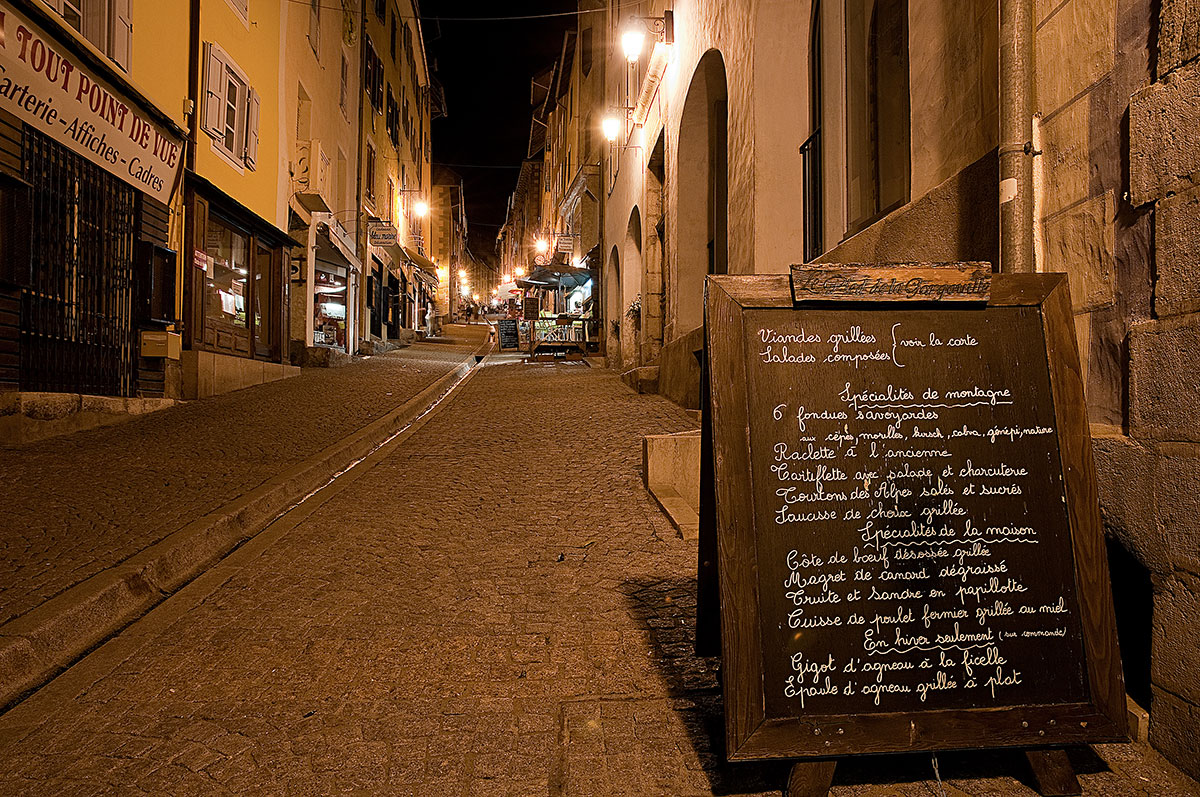 TOUT POINT DE VUE
Carterie-Affiches-Cadres
de la Gargouille
Viandes grillées
Salades composées
{ voir la carte
Spécialités de montagne
6 fondues savoyardes
aux cèpes, morilles, kirsch, calva, génépi, nature
Raclette à l'ancienne
Tartiflette avec salade et charcuterie
Tourtons des Alpes salés et sucrés
Saucisse de choux grillée
Spécialités de la maison
Côte de bœuf désossée grillée
Magret de canard dégraissé
Truite et Sandre en papillotte
Cuisse de poulet fermier grillée au miel
En hiver seulement (sur commande)
Gigot d'agneau à la ficelle
Epaule d'agneau grillée à plat